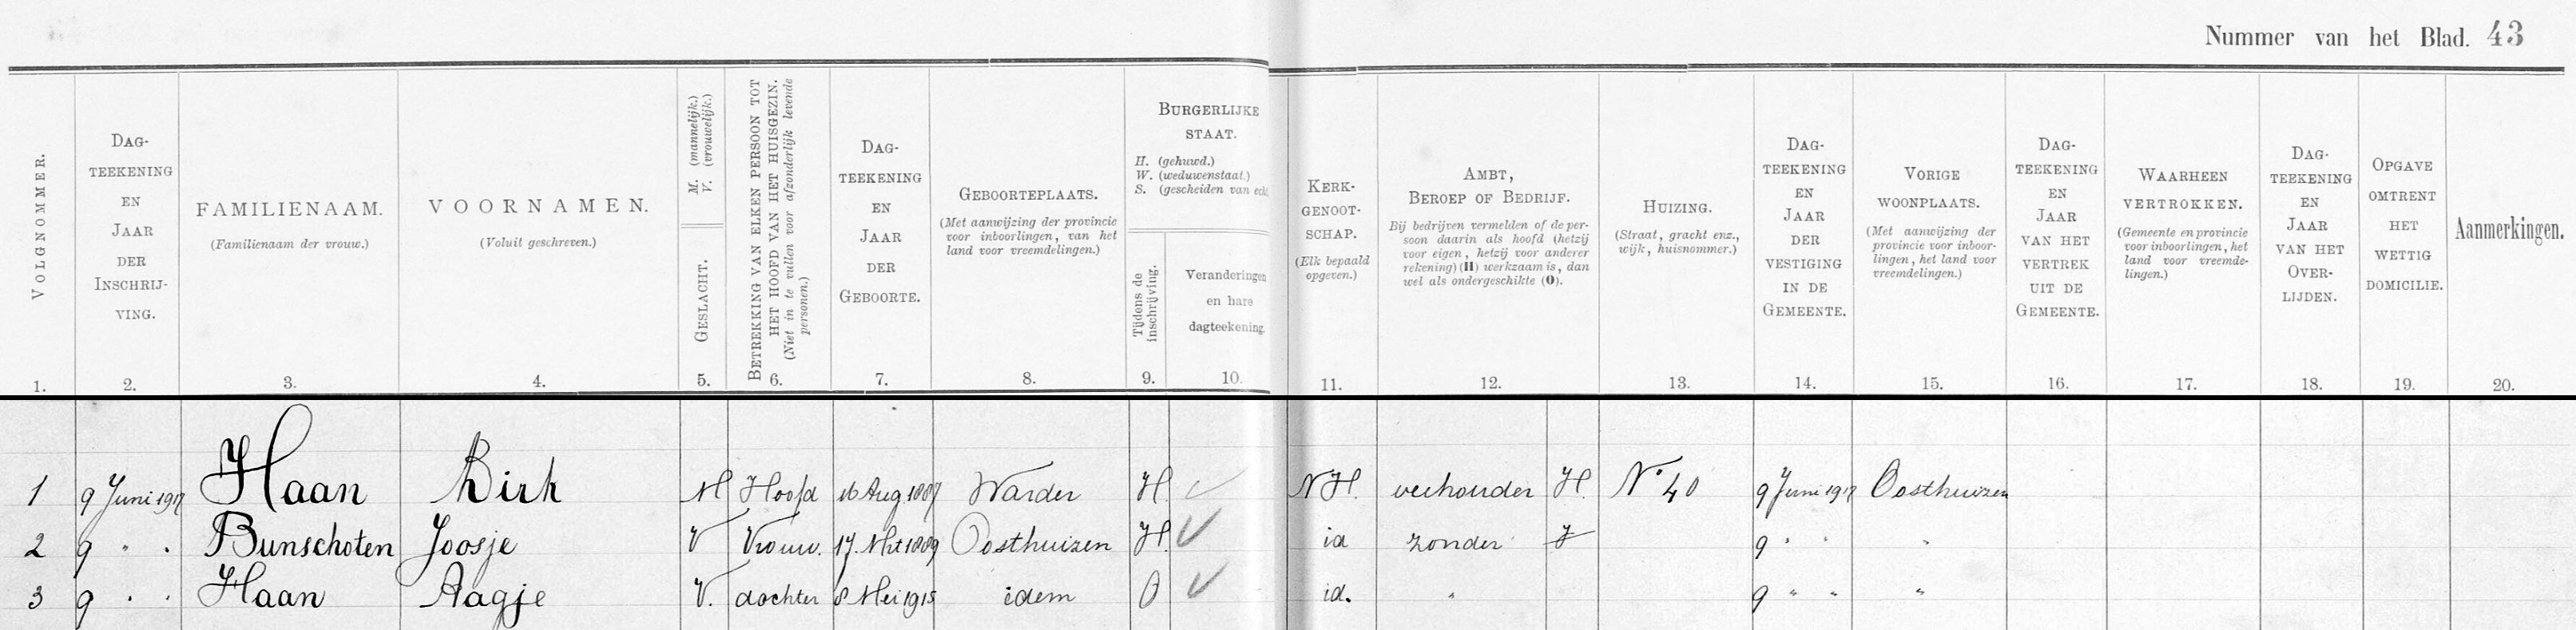 Nummer van het Blad. 43
VOLGNOMMER.
1.
DAG-
TEEKENING
EN
JAAR
DER
INSCHRIJ-
VING.
2.
FAMILIENAAM.
(Familienaam der vrouw.)
3.
VOORNAMEN.
(Voluit geschreven.)
4.
M. (mannelijk.)
V. (vrouwelijk.)
GESLACHT.
5.
BETREKKING VAN ELKEN PERSOON TOT
HET HOOFD VAN HET HUISGEZIN.
(Niet in te vullen voor afzonderlijk levende
personen.)
6.
DAG-
TEEKENING
EN
JAAR
DER
GEBOORTE.
7.
GEBOORTEPLAATS.
(Met aanwijzing der provincie
voor inboorlingen, van het
land voor vreemdelingen.)
8.
BURGERLIJKE
STAAT.
H. (gehuwd.)
W. (weduwenstaat.)
S. (gescheiden van echt
Tijdens de
inschrijving.
9.
Veranderingen
en hare
dagteekening.
10.
KERK-
GENOOT-
SCHAP.
(Elk bepaald
opgeven.)
11.
AMBT,
BEROEP OF BEDRIJF.
Bij bedrijven vermelden of de per-
soon daarin als hoofd (hetzij
voor eigen, hetzij voor anderer
rekening) (H) werkzaam is, dan
wel als ondergeschikte (O).
12.
HUIZING.
(Straat, gracht enz.,
wijk, huisnommer.)
13.
DAG-
TEEKENING
EN
JAAR
DER
VESTIGING
IN DE
GEMEENTE.
14.
VORIGE
WOONPLAATS.
(Met aanwijzing der
provincie voor inboor-
lingen, het land voor
vreemdelingen.)
15.
DAG-
TEEKENING
EN
JAAR
VAN HET
VERTREK
UIT DE
GEMEENTE.
16.
WAARHEEN
VERTROKKEN.
(Gemeente en provincie
voor inboorlingen, het
land voor vreemde-
lingen.)
17.
DAG-
TEEKENING
EN
JAAR
VAN HET
OVER-
LIJDEN.
18.
OPGAVE
OMTRENT
HET
WETTIG
DOMICILIE.
19.
Aanmerkingen.
20.
1 9 Juni 1917 Haan Dirk M Hoofd 16 Aug 1887 Warder H. NH. veehouder H. No 40 9 Juni 1917 Oosthuizen
2 9 " " Bunschoten Joosje V Vrouw. 17. Mrt 1889 Oosthuizen H. id zonder 9 " " "
3 9 " " Haan Aagje V. dochter 8 Mei 1915 idem O id. " 9 " " "